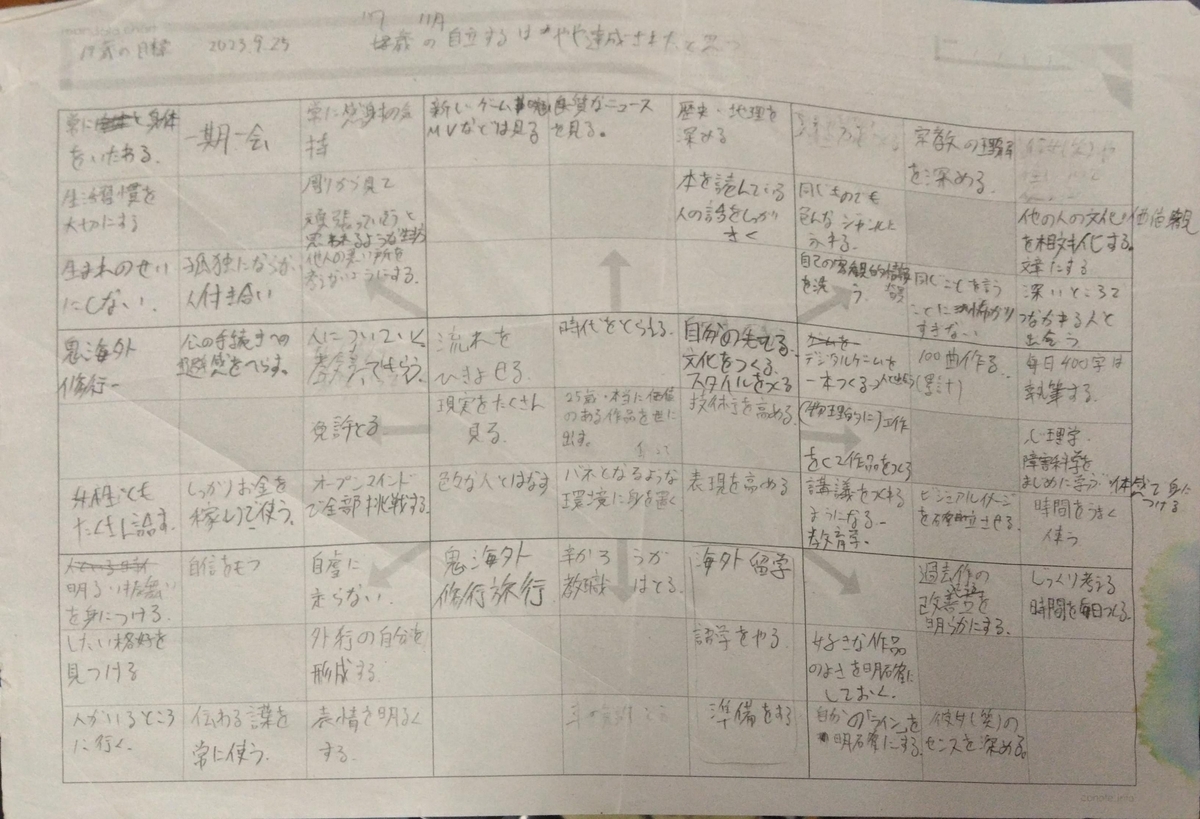 17歳の目標 2023.9.25
17 11月
歳の自立するはやや達成されたと思う
常に身体
をいたわる。
一期一会
常に感謝の気
持
新しいゲーム
MVなどは見る
良質なニュース
を見る。
歴史・地理を
深める
宗教の理解
を深める。
生活習慣を
大切にする
周りから見て
頑張っていそうと
思われるような生き方
本を読んでいる
人の話をしっかり
きく
同じものでも
色んなジャンルに
ふれる。
他の人の文化・価値観
を相対化する。
文章にする
生まれのせい
にしない。
孤独にならない
人付き合い
他人の悪い所を
考えないようにする。
自己の客観的情報
を洗う。
同じことを言う
ことに怖がり
すぎない
深いところで
つながる人と
出会う
鬼海外
修行
公の手続きへの
避感をへらす。
人についていく
流れを
ひきよせる。
時代をとらえる。
自分の先をいく
文化をつくる
スタイルをつくる
デジタルゲームを
一本つくる
100曲作る
(累計)
毎日400字は
執筆する。
免許とる
現実をたくさん
見る。
25歳・本当に価値
のある作品を世に
出す。
技術を高める。
(物理的に)工作
をして作品をつくる
心理学
障害科学を
まじめに学ぶ・体感で身に
つける
女性とも
たくさん話す。
しっかりお金を
稼いで使う。
オープンマインド
で全部挑戦する。
色々な人とはなす
バネとなるような
環境に身を置く
表現を高める
講議をつくれる
ようになる
教育学。
ビジュアルイメージ
を確立させる。
時間をうまく
使う
明るい振る舞い
を身につける。
自信をもつ
自虐に
走らない。
鬼海外
修行旅行
教職はとる。
海外留学
過去作の
改善点を
明らかにする。
じっくり考える
時間を毎日つくる。
したい格好を
見つける
外行の自分を
形成する。
語学をやる
好きな作品
のよさを明確に
しておく。
人がいるところ
に行く。
伝わる言葉を
常に使う。
表情を明るく
する。
準備をする
自分の「ライン」を
明確にする。
彼女(笑)の
センスを深める。